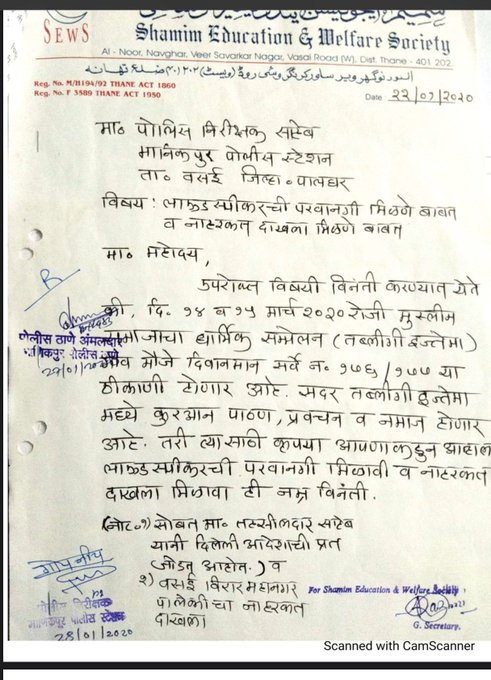 SEWS
Shamim Education & Welfare Society
Al - Noor, Navghar, Veer Savarkar Nagar, Vasai Road (W), Dist. Thane - 401 202.
Reg. No. M/H194/92 THANE ACT 1860
Reg. No. F 3589 THANE ACT 1950
Date २२/०१/२०२०
मा० पोलिस निरीक्षक साहेब
माणिकपुर पोलीस स्टेशन
ता० वसई जिल्हा० पालघर
विषय : लाऊडस्पीकरची परवानगी मिळणे बाबत
व नाहरकत दाखला मिळणे बाबत
मा० महोदय,
उपरोक्त विषयी विनंती करण्यात येते
की, दि. १४ व १५ मार्च २०२० रोजी मुस्लीम
समाजाचा धार्मिक सम्मेलन (तब्लीगी इज्तेमा)
गाव मौजे दिवानमान सर्वे नं. १७६/१७७ या
ठीकाणी होणार आहे. सदर तब्लीगी इज्तेमा
मध्ये कुरआन पाठण, प्रवचन व नमाज होणार
आहे. तरी त्यासाठी कृपया आपणाकडुन आम्हाला
लाऊडस्पीकरची परवानगी मिळावी व नाहरकत
दाखला मिळावा ही नम्र विनंती.
(नोट.१) सोबत मा० तहसीलदार साहेब
यानी दिलेली आदेशाची प्रत
जोडत आहोत.) व
२) वसई विरार महानगर
पालिकेचा नाहरकत
दाखला
पोलीस ठाणे अंमलदार
माणिकपूर पोलीस ठाणे
२७/०१/२०२०
गोपनीय
पोलीस निरीक्षक
माणिकपूर पोलीस स्टेशन
28/01/2020
For Shamim Education & Welfare Society
G. Secretary.
Scanned with CamScanner